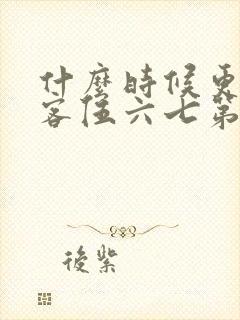 什麼時候更
客伍六七第
後紫